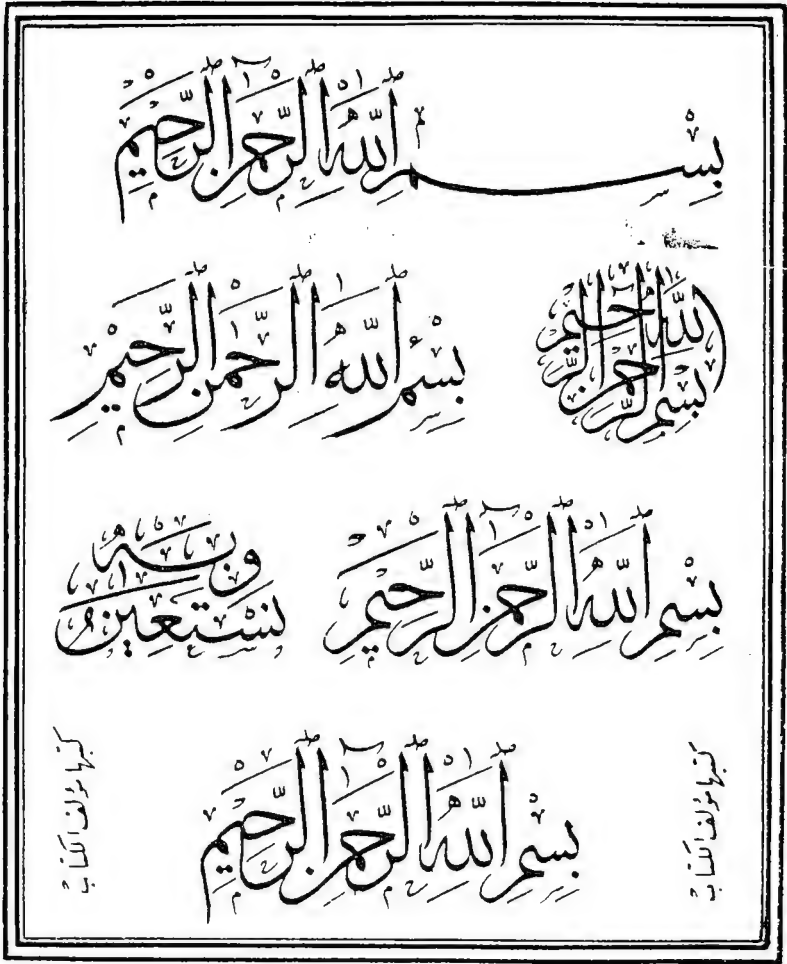 بِسْمِ اللهِ الرَّحْمٰنِ الرَّحِيْمِ
بِسْمِ اللهِ الرَّحْمٰنِ الرَّحِيْمِ
بِسْمِ اللهِ الرَّحْمٰنِ الرَّحِيْمِ
بِسْمِ اللهِ الرَّحْمٰنِ الرَّحِيْمِ
وَبِهِ نَسْتَعِيْنُ
بِسْمِ اللهِ الرَّحْمٰنِ الرَّحِيْمِ
كتبها مؤلف الكتاب
كتبها مؤلف الكتاب